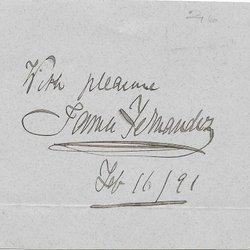 With pleasure
James Fernandez
Feb 16/91